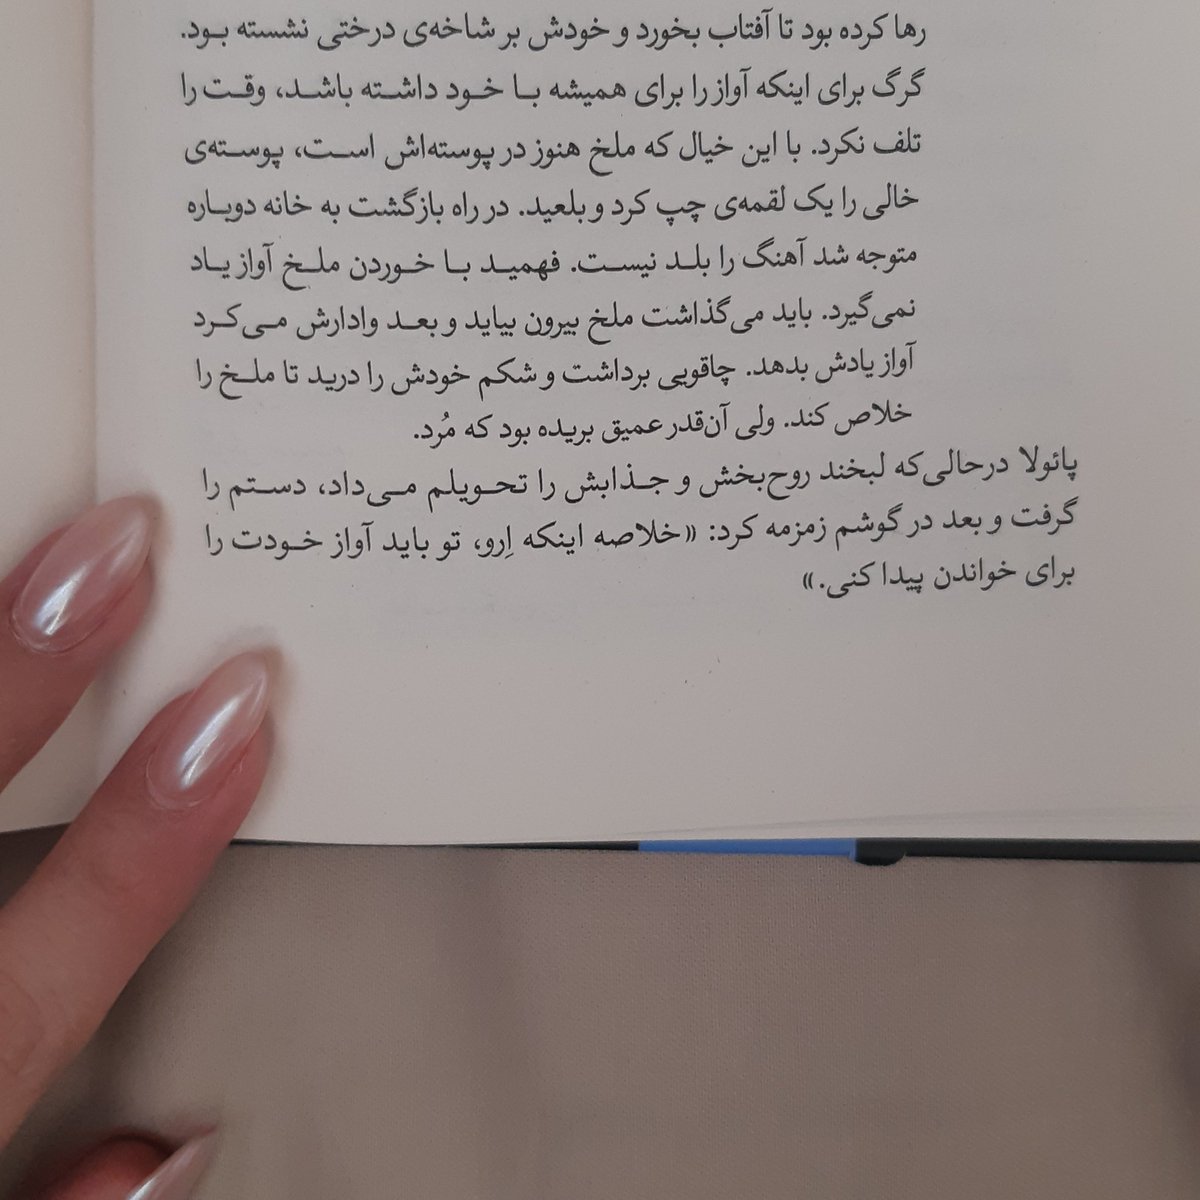 رها کرده بود تا آفتاب بخورد و خودش بر شاخه‌ی درختی نشسته بود.
گرگ برای اینکه آواز را برای همیشه با خود داشته باشد، وقت را
تلف نکرد. با این خیال که ملخ هنوز در پوسته‌اش است، پوسته‌ی
خالی را یک لقمه‌ی چپ کرد و بلعید. در راه بازگشت به خانه دوباره
متوجه شد آهنگ را بلد نیست. فهمید با خوردن ملخ آواز یاد
نمی‌گیرد. باید می‌گذاشت ملخ بیرون بیاید و بعد وادارش می‌کرد
آواز یادش بدهد. چاقویی برداشت و شکم خودش را درید تا ملخ را
خلاص کند. ولی آن‌قدر عمیق بریده بود که مُرد.
پائولا درحالی‌که لبخند روح‌بخش و جذابش را تحویلم می‌داد، دستم را
گرفت و بعد در گوشم زمزمه کرد: «خلاصه اینکه اِرو، تو باید آواز خودت را
برای خواندن پیدا کنی.»